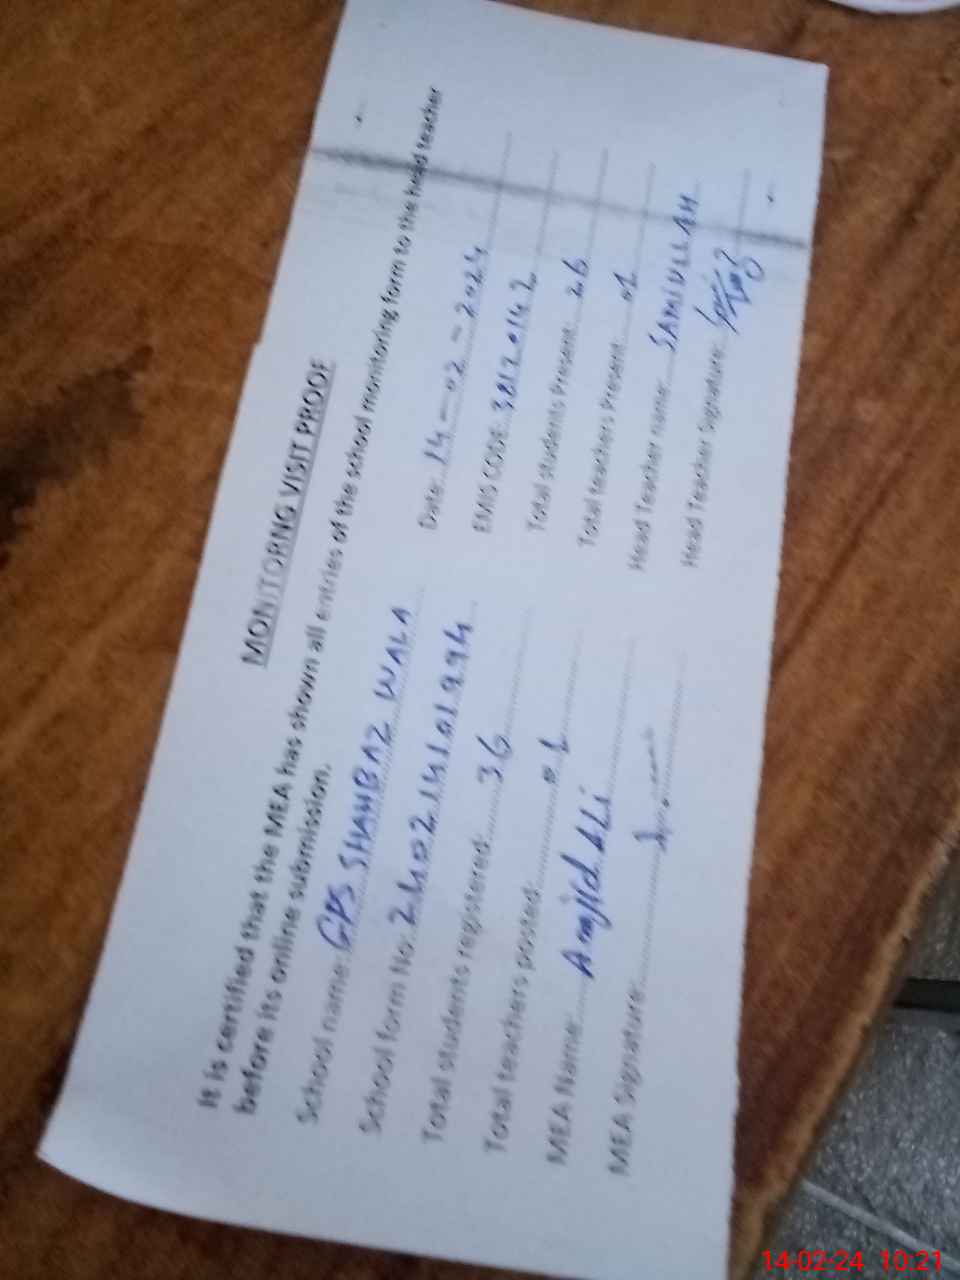 MONITORNG VISIT PROOF
It is certified that the MEA has shown all entries of the school monitoring form to the head teacher
before its online submission.
School name: GPS SHAHBAZ WALA Date: 14-02-2024
School form No: 240214101994 EMIS CODE: 38120142
Total students registered: 36 Total students Present: 26
Total teachers posted: 01 Total teachers Present: 01
MEA Name: Amjid ALi Head Teacher name: SAMIULLAH
MEA Signature: Head Teacher Signature:
14-02-24 10:21